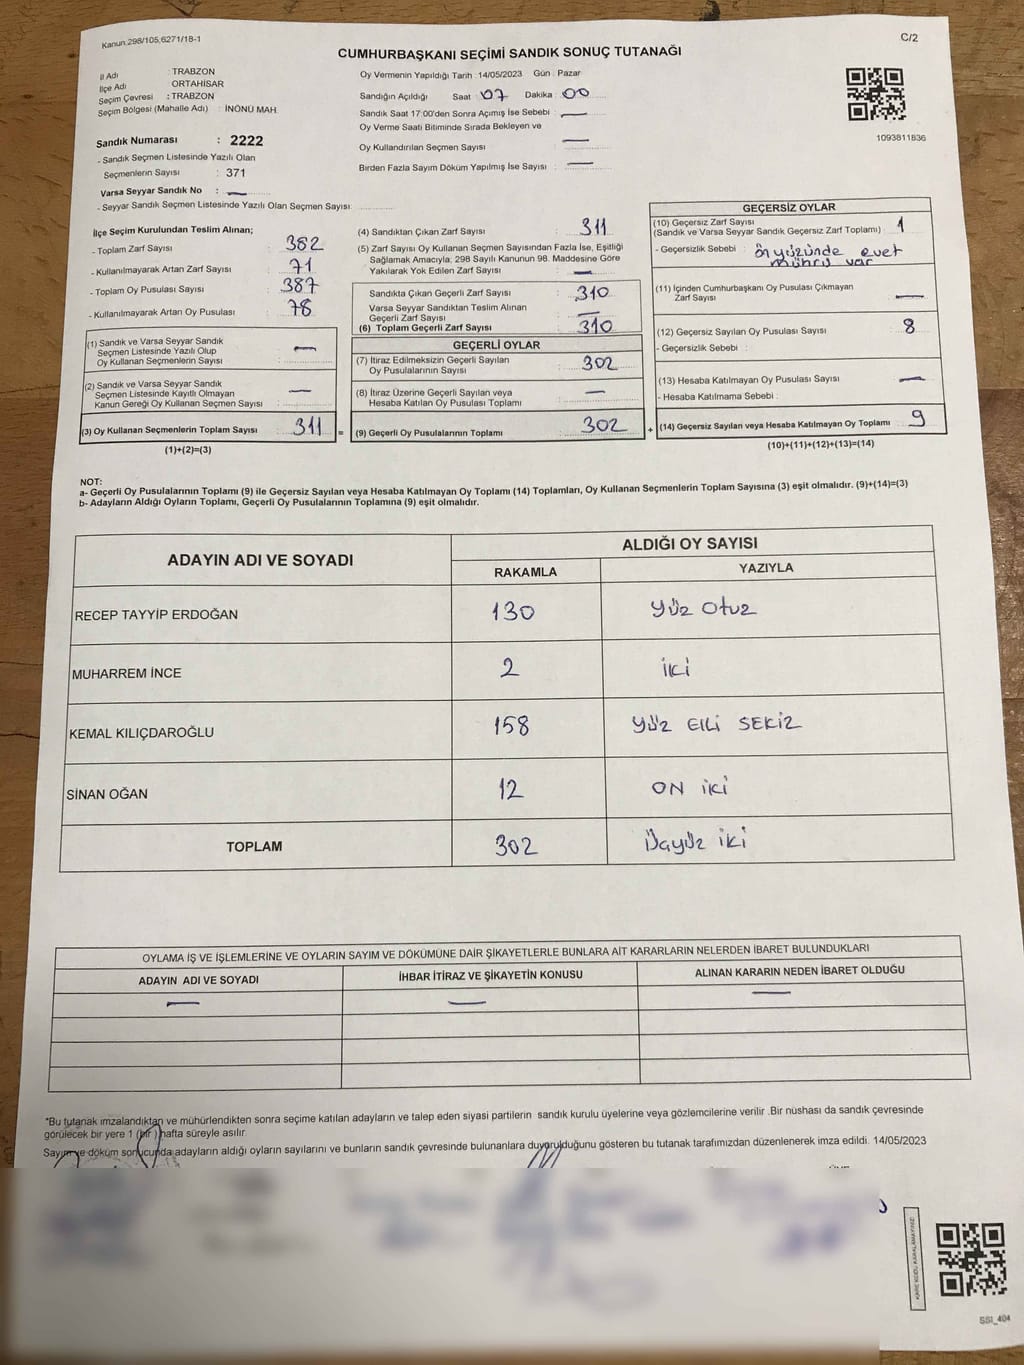 Kanun,298/105,6271/18-1
C/2
CUMHURBAŞKANI SEÇİMİ SANDIK SONUÇ TUTANAĞI
İl Adı : TRABZON
İlçe Adı : ORTAHİSAR
Seçim Çevresi : TRABZON
Seçim Bölgesi (Mahalle Adı) : İNÖNÜ MAH.
Sandık Numarası : 2222
- Sandık Seçmen Listesinde Yazılı Olan
Seçmenlerin Sayısı : 371
Varsa Seyyar Sandık No : —
- Seyyar Sandık Seçmen Listesinde Yazılı Olan Seçmen Sayısı:
Oy Vermenin Yapıldığı Tarih : 14/05/2023 Gün : Pazar
Sandığın Açıldığı Saat : 07 Dakika : 00
Sandık Saat 17:00'den Sonra Açımış İse Sebebi : —
Oy Verme Saati Bitiminde Sırada Bekleyen ve
Oy Kullandırılan Seçmen Sayısı : —
Birden Fazla Sayım Döküm Yapılmış İse Sayısı : —
1093811836
İlçe Seçim Kurulundan Teslim Alınan;
- Toplam Zarf Sayısı : 382
- Kullanılmayarak Artan Zarf Sayısı : 71
- Toplam Oy Pusulası Sayısı : 387
- Kullanılmayarak Artan Oy Pusulası : 78
(1) Sandık ve Varsa Seyyar Sandık
Seçmen Listesinde Yazılı Olup
Oy Kullanan Seçmenlerin Sayısı : —
(2) Sandık ve Varsa Seyyar Sandık
Seçmen Listesinde Kayıtlı Olmayan
Kanun Gereği Oy Kullanan Seçmen Sayısı : —
(3) Oy Kullanan Seçmenlerin Toplam Sayısı : 311
(1)+(2)=(3)
(4) Sandıktan Çıkan Zarf Sayısı : 311
(5) Zarf Sayısı Oy Kullanan Seçmen Sayısından Fazla İse, Eşitliği
Sağlamak Amacıyla, 298 Sayılı Kanunun 98. Maddesine Göre
Yakılarak Yok Edilen Zarf Sayısı : —
Sandıkta Çıkan Geçerli Zarf Sayısı : 310
Varsa Seyyar Sandıktan Teslim Alınan
Geçerli Zarf Sayısı : —
(6) Toplam Geçerli Zarf Sayısı : 310
GEÇERLİ OYLAR
(7) İtiraz Edilmeksizin Geçerli Sayılan
Oy Pusulalarının Sayısı : 302
(8) İtiraz Üzerine Geçerli Sayılan veya
Hesaba Katılan Oy Pusulası Toplamı : —
= (9) Geçerli Oy Pusulalarının Toplamı : 302
GEÇERSİZ OYLAR
(10) Geçersiz Zarf Sayısı
(Sandık ve Varsa Seyyar Sandık Geçersiz Zarf Toplamı) : 1
- Geçersizlik Sebebi : ön yüzünde evet
mührü var
(11) İçinden Cumhurbaşkanı Oy Pusulası Çıkmayan
Zarf Sayısı : —
(12) Geçersiz Sayılan Oy Pusulası Sayısı : 8
- Geçersizlik Sebebi :
(13) Hesaba Katılmayan Oy Pusulası Sayısı : —
- Hesaba Katılmama Sebebi :
+ (14) Geçersiz Sayılan veya Hesaba Katılmayan Oy Toplamı : 9
(10)+(11)+(12)+(13)=(14)
NOT:
a- Geçerli Oy Pusulalarının Toplamı (9) ile Geçersiz Sayılan veya Hesaba Katılmayan Oy Toplamı (14) Toplamları, Oy Kullanan Seçmenlerin Toplam Sayısına (3) eşit olmalıdır. (9)+(14)=(3)
b- Adayların Aldığı Oyların Toplamı, Geçerli Oy Pusulalarının Toplamına (9) eşit olmalıdır.
ADAYIN ADI VE SOYADI
ALDIĞI OY SAYISI
RAKAMLA YAZIYLA
RECEP TAYYİP ERDOĞAN 130 Yüz Otuz
MUHARREM İNCE 2 iki
KEMAL KILIÇDAROĞLU 158 yüz Elli SEKİZ
SİNAN OĞAN 12 ON iki
TOPLAM 302 Üçyüz iki
OYLAMA İŞ VE İŞLEMLERİNE VE OYLARIN SAYIM VE DÖKÜMÜNE DAİR ŞİKAYETLERLE BUNLARA AİT KARARLARIN NELERDEN İBARET BULUNDUKLARI
ADAYIN ADI VE SOYADI İHBAR İTİRAZ VE ŞİKAYETİN KONUSU ALINAN KARARIN NEDEN İBARET OLDUĞU
— — —
*Bu tutanak imzalandıktan ve mühürlendikten sonra seçime katılan adayların ve talep eden siyasi partilerin sandık kurulu üyelerine veya gözlemcilerine verilir .Bir nüshası da sandık çevresinde
görülecek bir yere 1 (bir) hafta süreyle asılır.
Sayım ve döküm sonucunda adayların aldığı oyların sayılarını ve bunların sandık çevresinde bulunanlara duyurulduğunu gösteren bu tutanak tarafımızdan düzenlenerek imza edildi. 14/05/2023
KARE KODU KARALAMAYINIZ!
SSI_404